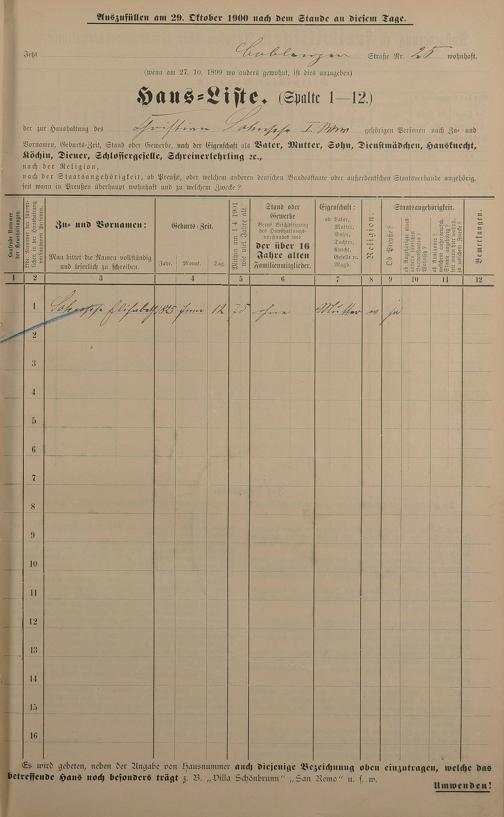 Auszufüllen am 29. Oktober 1900 nach dem Stande an diesem Tage.
Jetzt Coblenzer Straße Nr. 25 wohnhaft.
(wenn am 27. 10. 1899 wo anders gewohnt, ist dies anzugeben)
Haus=Liste. (Spalte 1—12.)
der zur Haushaltung des Christian I. Wwe gehörigen Personen nach Zu- und
Vornamen, Geburts-Zeit, Stand oder Gewerbe, nach der Eigenschaft als Vater, Mutter, Sohn, Dienstmädchen, Hausknecht,
Köchin, Diener, Schlossergeselle, Schreinerlehrling ec.,
nach der Religion,
nach der Staatsangehörigkeit, ob Preuße, oder welchem anderen deutschen Bundesstaate oder außerdeutschen Staatsverbande angehörig,
seit wann in Preußen überhaupt wohnhaft und zu welchem Zwecke?
Laufende Nummer der Haushaltungen.
Zu- und Vornamen:
Man bittet die Namen vollständig und leserlich zu schreiben.
Geburts-Zeit.
Jahr. Monat. Tag.
Mithin am 1/4 1901 wie viel Jahre alt.
Stand oder Gewerbe
der über 16 Jahre alten Familienmitglieder.
Eigenschaft:
ob Vater, Mutter, Sohn, Tochter, Knecht, Geselle, Magd.
Religion.
Staatsangehörigkeit.
Ob Preuße?
Bemerkungen.
1 2 3 4 5 6 7 8 9 10 11 12
1 Elisabeth 1825 Juni 12 75 ohne Mutter ja
2
3
4
5
6
7
8
9
10
11
12
13
14
15
16
Es wird gebeten, neben der Angabe von Hausnummer auch diejenige Bezeichnung oben einzutragen, welche das
betreffende Haus noch besonders trägt z. B. „Villa Schönbrunn" „San Remo" u. s. w.
Umwenden!